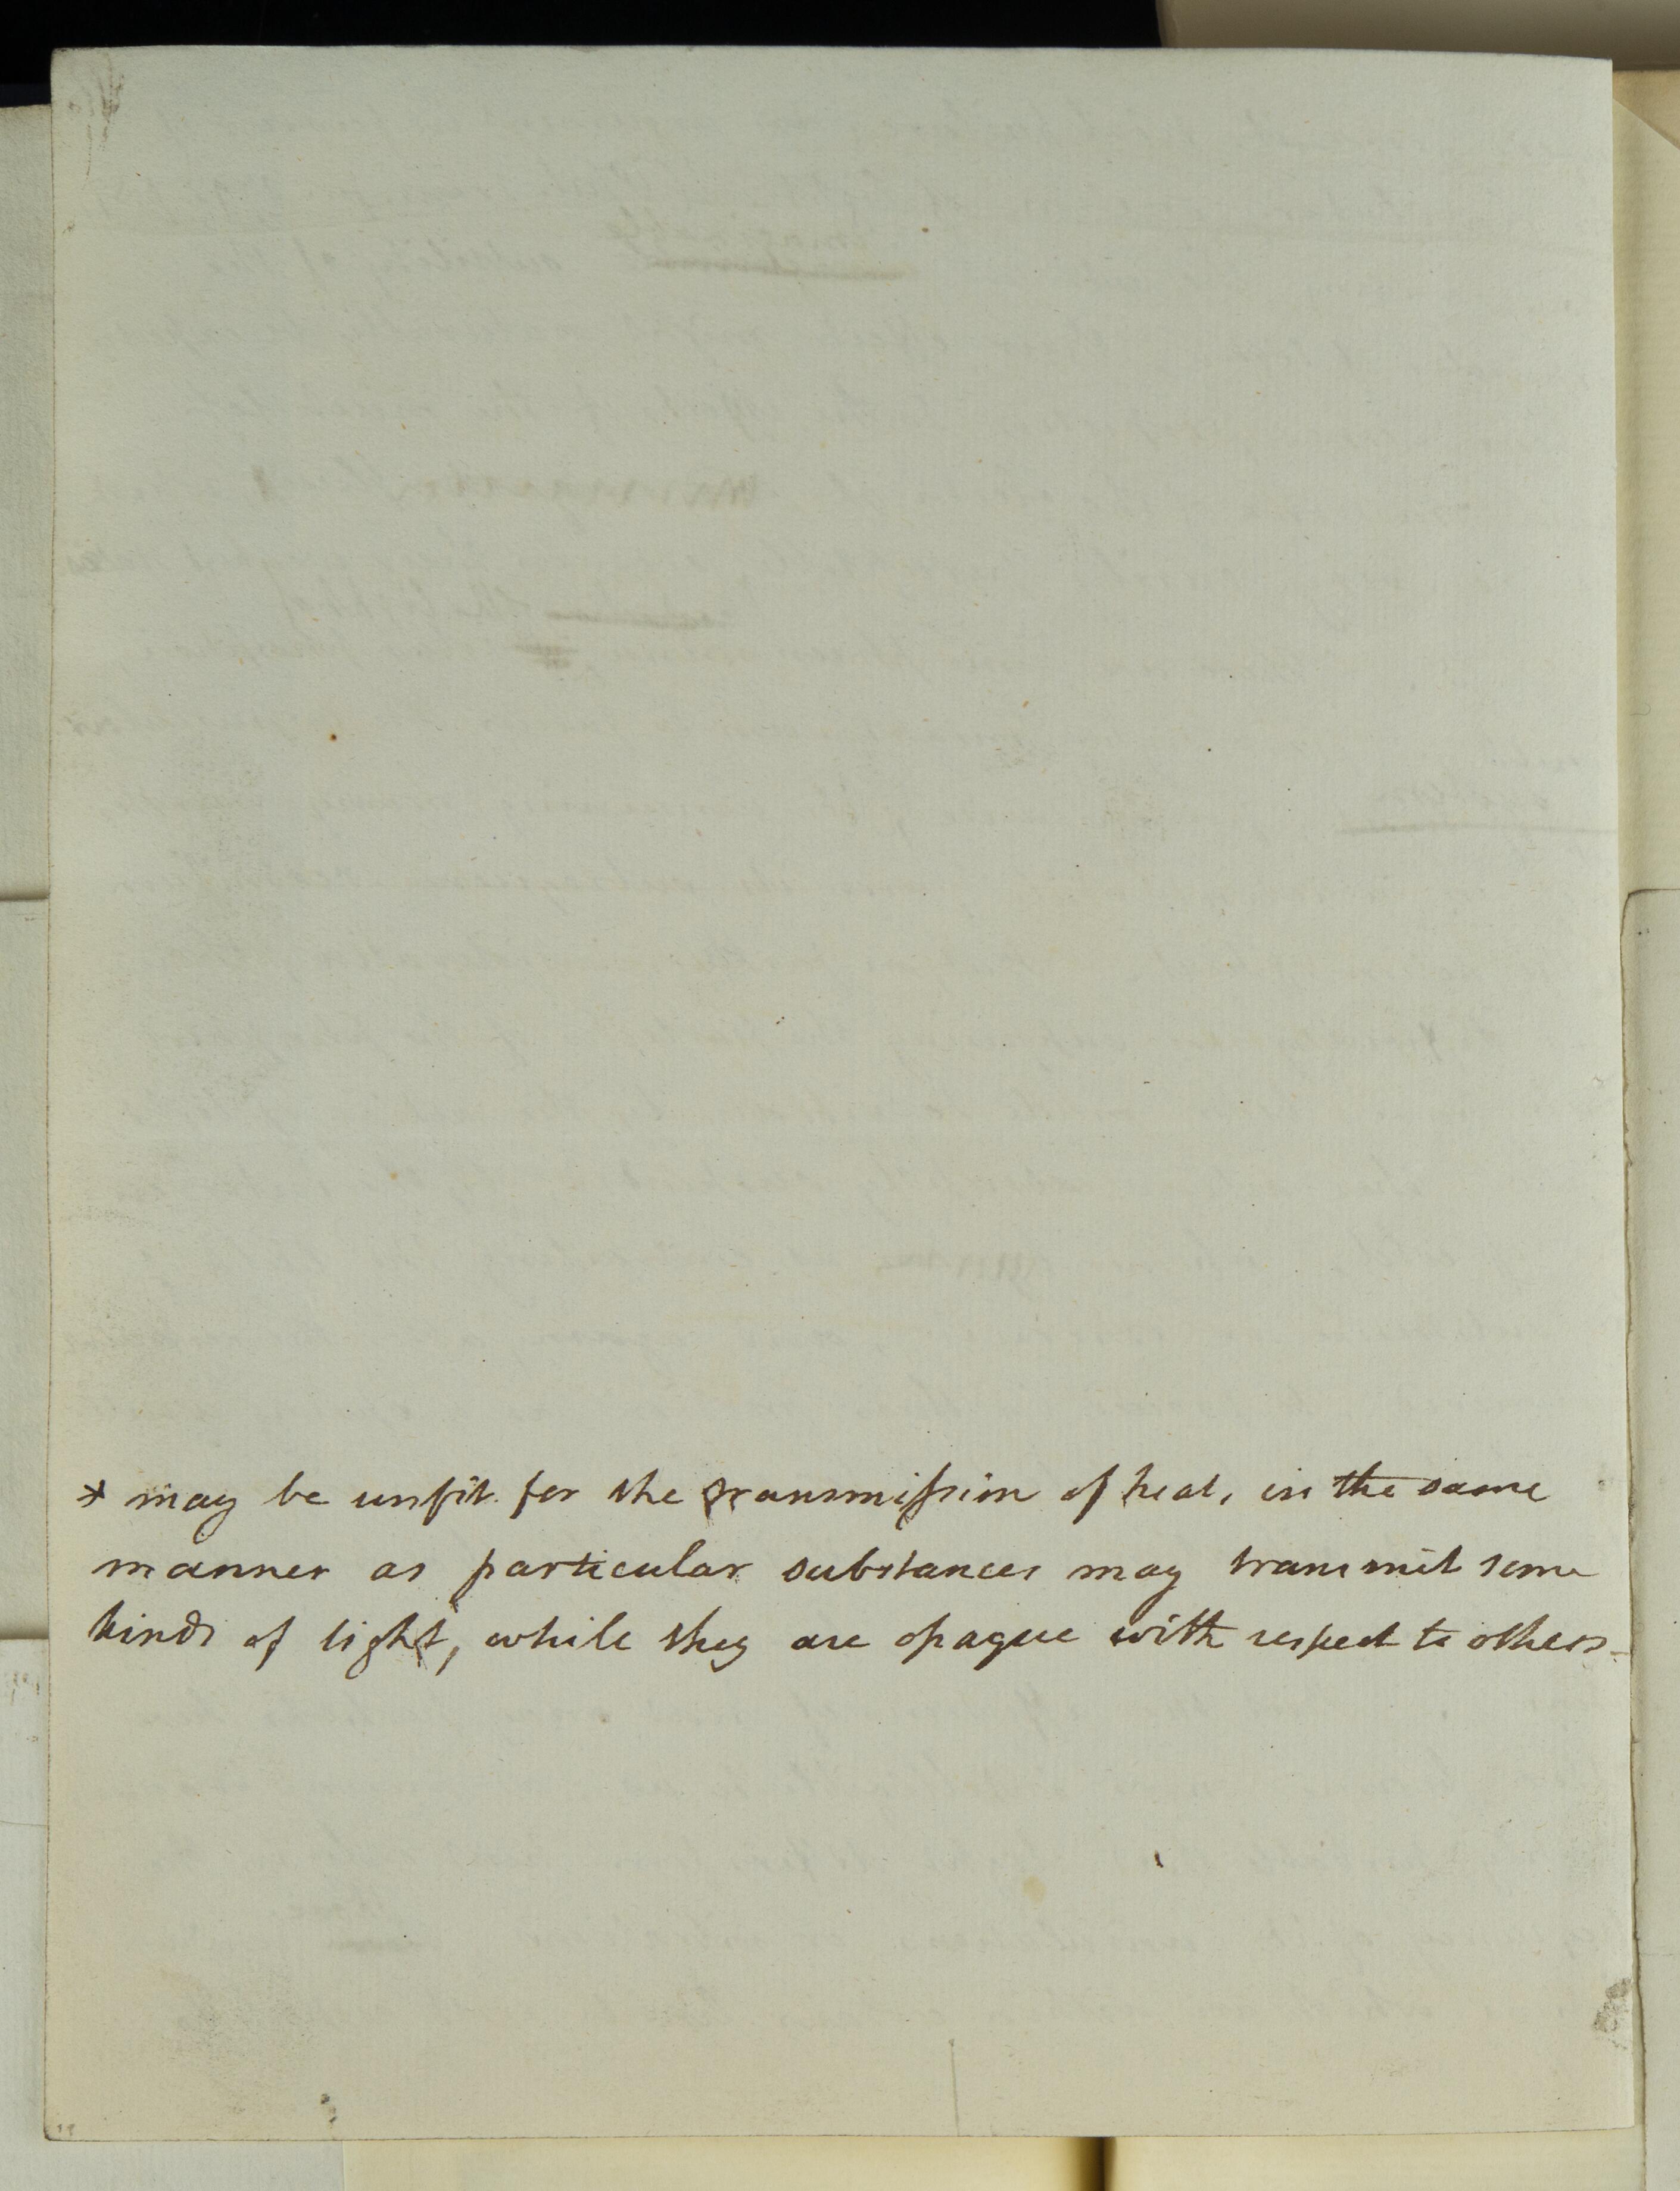 * may be unfit for the transmission of heat, in the same
manner as particular substances may transmit some
kinds of light, while they are opaque with respect to others-